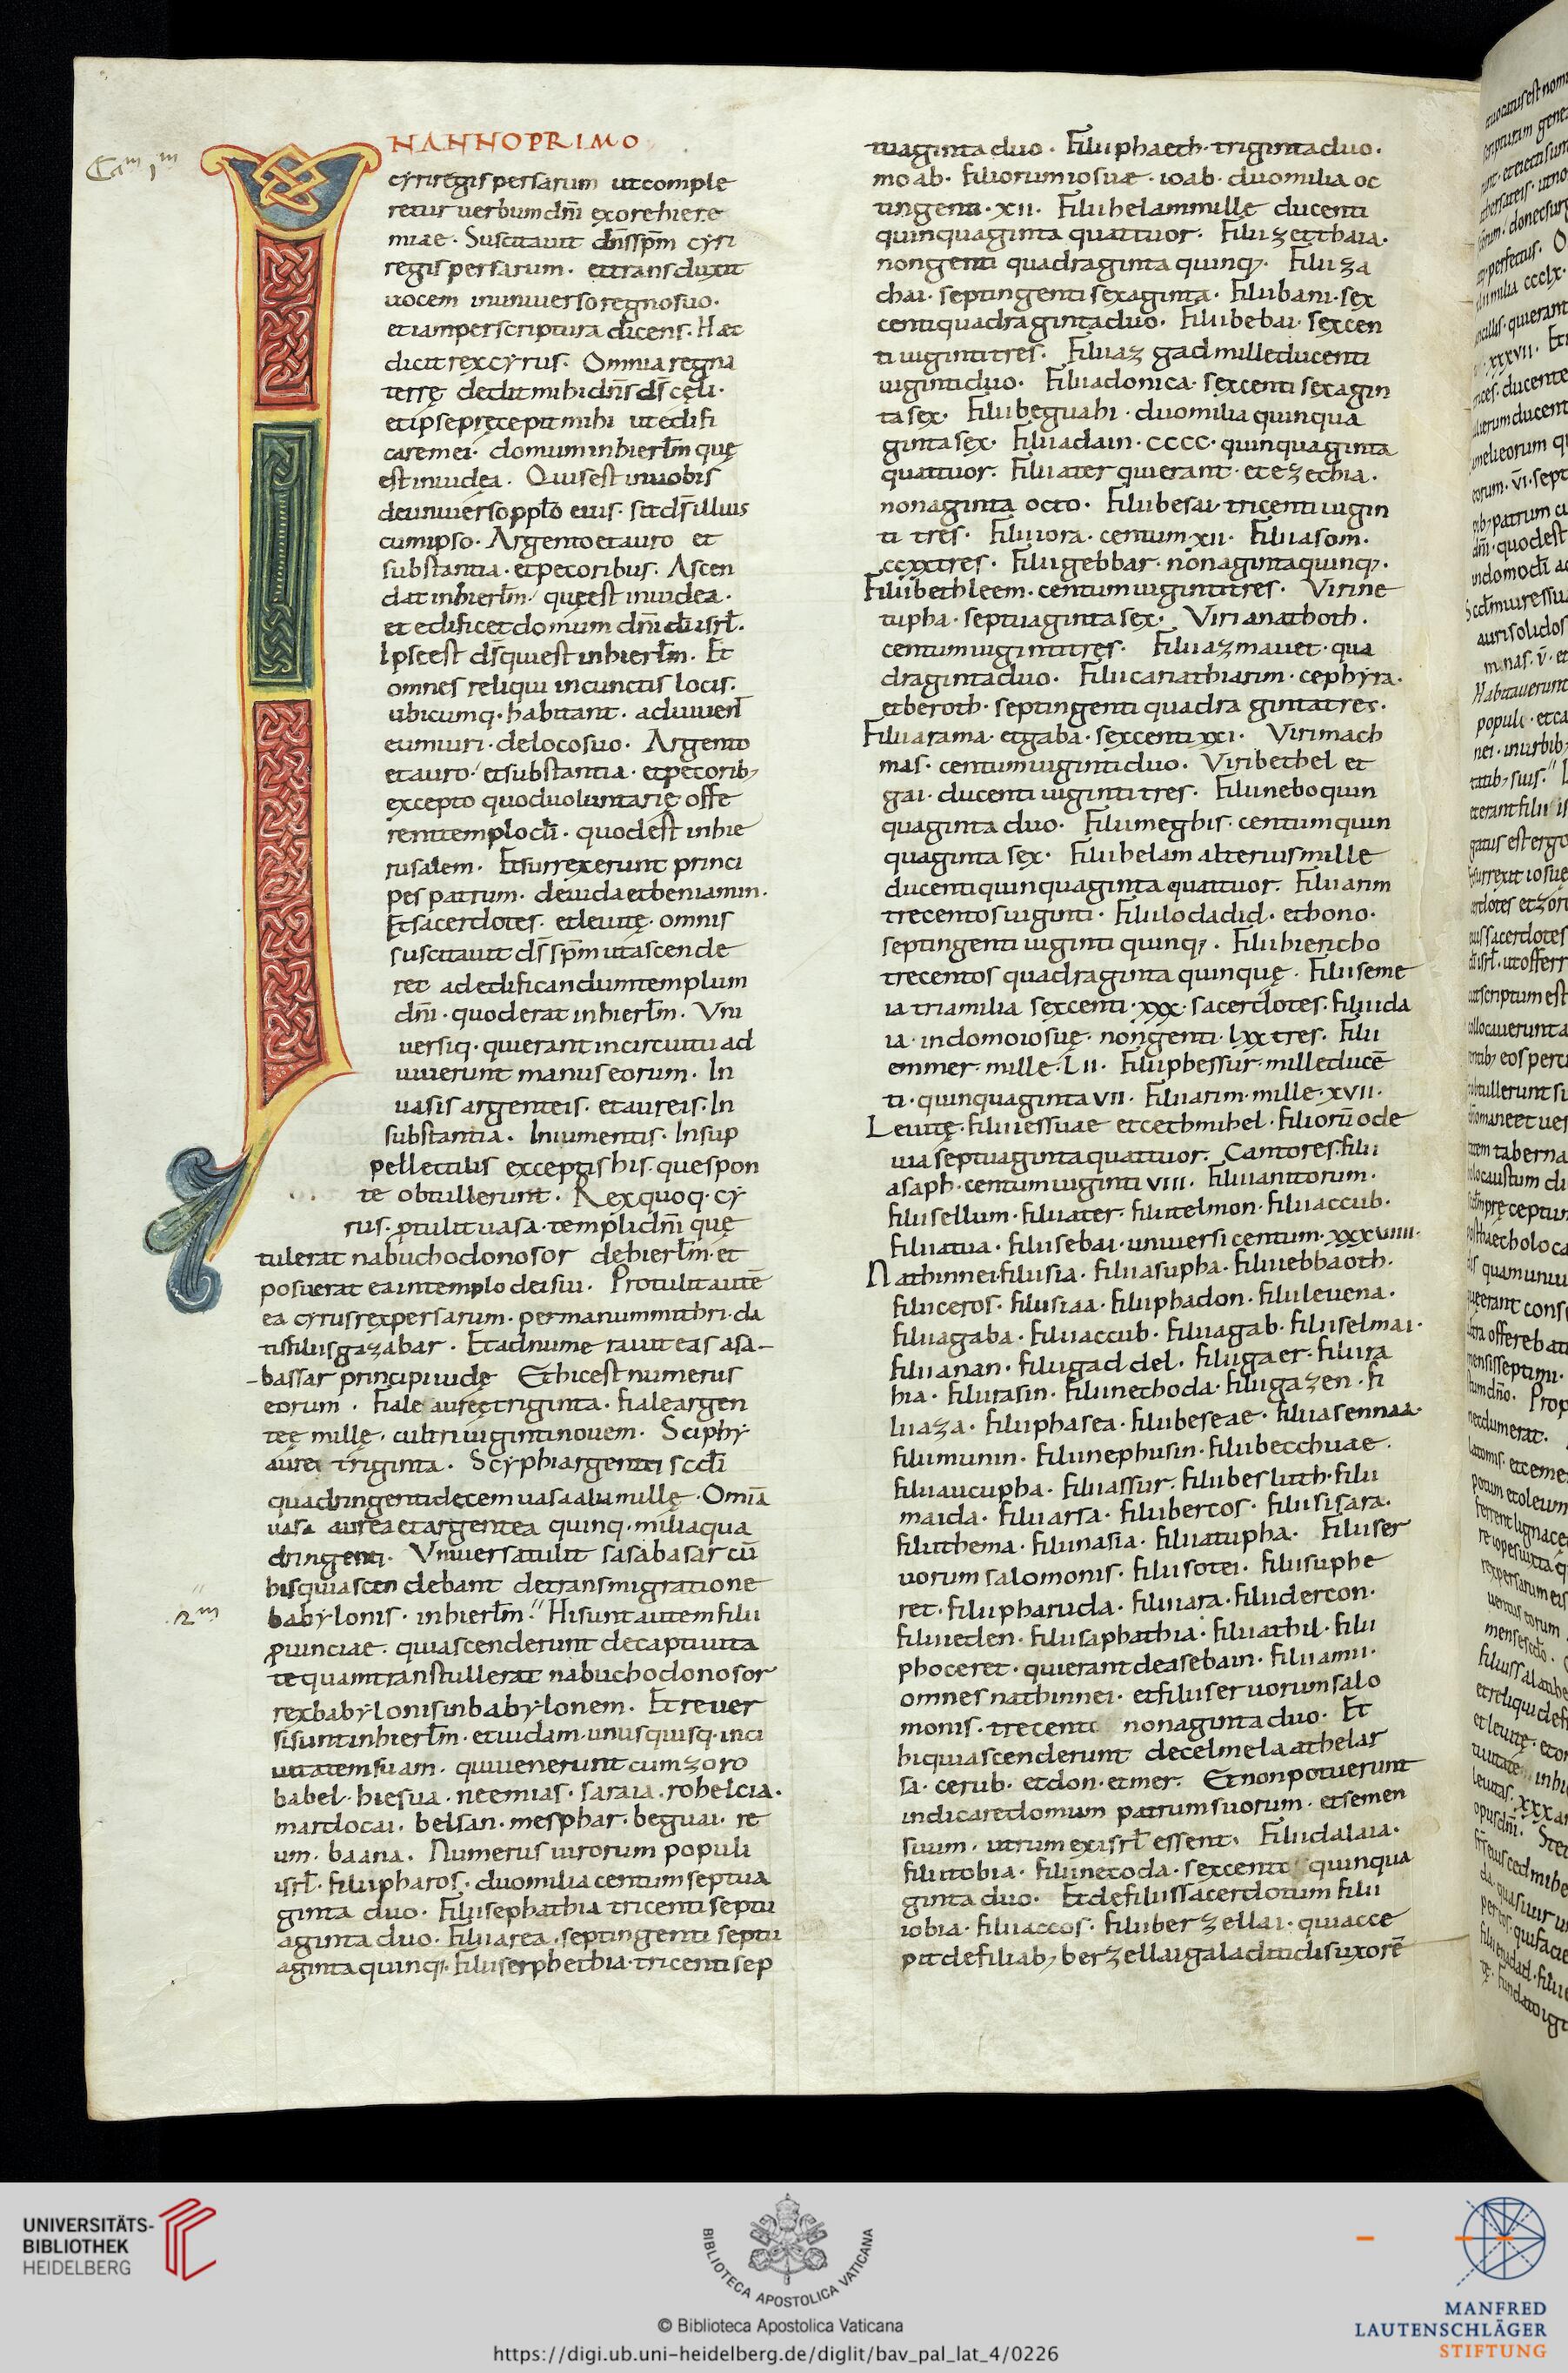 Cam 1m
NANNOPRIMO
cyri regis persarum ut comple
retur uerbum dn̄i ex ore hiere
miae. Suscitauit dn̄s sp̄m cyri
regis persarum. et transduxit
uocem in uniuerso regno suo.
etiam per scriptura dicens. Haec
dicit rex cyrus. Omnia regna
terrę dedit mihi dn̄s ds̄ cęli.
et ipse pręcepit mihi ut edifi
carem ei domum in hierl̄m quę
est in iudęa. Quis est in uobis
de uniuerso ppl̄o eius. sit ds̄ illius
cum ipso. Argento et auro et
substantia. et pecoribus. Ascen
dat in hierl̄m quę est in iudea.
et edificet domum dn̄i dī isrl̄.
Ipse est ds̄ qui est in hierl̄m. Et
omnes reliqui in cunctis locis.
ubicumq. habitant. adiuuen̄t
eum uiri. de loco suo. Argento
et auro. et substantia. et pecorib;
excepto quod uoluntarię offe
runt templo dī. quod est in hie
rusalem. Et surrexerunt princi
pes patrum. de iuda et beniamin.
Et sacerdotes. et leuitę. omnis
suscitauit ds̄ sp̄m ut ascende
ret ad edificandum templum
dn̄i. quod erat in hierl̄m. Vni
uersiq. qui erant in circuitu ad
iuuerunt manus eorum. In
uasis argenteis. et aureis. In
substantia. In iumentis. In sup
pellectilis exceptis his. que spon
te obtullerunt. Rex quoq. cy
rus. ptulit uasa. templi dn̄i quę
tulerat nabuchodonosor de hierl̄m. et
posuerat ea in templo dei sui. Protulit autē
ea cyrus rex persarum. per manum mithri. da
tis filius gazabar. Et adnume rauit eas asa-
-bassar principi iudę Et hic est numerus
eorum. Fiale aureę triginta. fiale argen
teę millę. cultri uiginti nouem. Sciphy
aurei triginta. Scyphi argentei scdī
quadringenti decem uasa alia millę. Omīa
uasa aurea et argentea quinq. milia qua
dringenti. Vniuersa tulit sasabasar cū
his qui ascen debant de transmigratione
2m
babylonis. in hierl̄m. Hi sunt autem filii
puinciae. qui ascenderunt de captiuita
te quam transtullerat nabuchodonosor
rex babylonis in babylonem. Et reuer
si sunt in hierl̄m. et iudam. unusquisq. in ci
uitatem suam. qui uenerunt cum zoro
babel. hiesua. neemias. saraia. rohelcia.
mardocai. belsan. mesphar. beguai. re
um. baana. Numerus uirorum populi
isrl̄. filii pharos. duo milia centum septua
ginta duo. Filii sephathia tricenti septu
aginta duo. Filii area. septingenti septu
aginta quinq;. Filii serphethia. tricenti sep
tuaginta duo. Filii phaeth. triginta duo.
moab. filiorum iosuae. ioab. duo milia oc
tingenti. XII. Filii helam mille ducenti
quinquaginta quattuor. Filii zetthaia.
nongenti quadraginta quinq;. Filii za
chai. septingenti sexaginta. Filii bani. sex
centi quadraginta duo. Filii bebai. sexcen
ti uiginti tres. Filii az gad mille ducenti
uiginti duo. Filii adonica. sexcenti sexagin
ta sex. Filii beguahi. duo milia quinqua
ginta sex. Filii adain. CCCC. quinquaginta
quattuor. Filii ater qui erant. et ezechia.
nonaginta octo. Filii besai. tricenti uigin
ti tres. Filii iora. centum. XII. Filii asom.
CCXX tres. Filii gebbar. nonaginta quinq;.
Filii bethleem. centum uiginti tres. Viri ne
tupha. septuaginta sex. Viri anathoth.
centum uiginti tres. Filii azmauet. qua
draginta duo. Filii cariathiarim. cephyra.
et beroth. septingenti quadra ginta tres.
Filii arama. et gaba. sexcenti XXI. Viri mach
mas. centum uiginti duo. Viri bethel et
gai. ducenti uiginti tres. Filii nebo quin
quaginta duo. Filii meghis. centum quin
quaginta sex. Filii helam alterius mille
ducenti quinquaginta quattuor. Filii arim
trecentos uiginti. Filii lo dadid. et hono.
septingenti uiginti quinq;. Filii hiericho
trecentos quadraginta quinquę. Filii seme
ia tria milia sexcenti. XXX. sacerdotes. filii ida
ia. in domo iosuę. nongenti. LXX tres. Filii
emmer. mille. LII. Filii phessur. mille ducē
ti. quinquaginta VII. Filii arim. mille. XVII.
Leuitę. filii iessuae et cethmihel. filiorū ode
uia septuaginta quattuor. Cantores. filii
asaph. centum uiginti VIII. Filii ianitorum.
filii sellum. filii ater. filii telmon. filii accub.
filii atita. filii sebai. uniuersi centum. XXXVIIII.
Nathinnei. filii sia. filii asupha. filii ebbaoth.
filii ceros. filii siaa. filii phadon. filii leuena.
filii agaba. filii accub. filii agab. filii selmai.
filii anan. filii gad del. filii gaer. filii ra
hia. filii rasin. filii nethoda. filii gazen. fi
lii aza. filii phasea. filii beseae. filii asennaa.
filii munin. filii nephusin. filii becchuae.
filii aucupha. filii assur. filii besluth. filii
maida. filii arsa. filii bercos. filii sisara.
filii thema. filii nasia. filii atupha. Filii ser
uorum salomonis. filii sotei. filii suphe
ret. filii pharuda. filii iara. filii dercon.
filii ieden. filii saphathia. filii athil. filii
phoceret. qui erant de asebain. filii amii.
omnes nathinnei. et filii seruorum salo
monis. trecenti nonaginta duo. Et
hi qui ascenderunt de celmela athelar
sa. cerub. et don. et mer. Et non potuerunt
indicare domum patrum suorum. et semen
suum. utrum ex isrl̄ essent. Filii dalaia.
filii tobia. filii necoda. sexcenti quinqua
ginta duo. Et de filiis sacerdotum filii
iobia. filii accos. filii berzellai. qui acce
pit de filiab; berzellai galaditidis uxorē
UNIVERSITÄTS-
BIBLIOTHEK
HEIDELBERG
BIBLIOTECA APOSTOLICA VATICANA
© Biblioteca Apostolica Vaticana
https://digi.ub.uni-heidelberg.de/diglit/bav_pal_lat_4/0226
MANFRED
LAUTENSCHLÄGER
STIFTUNG